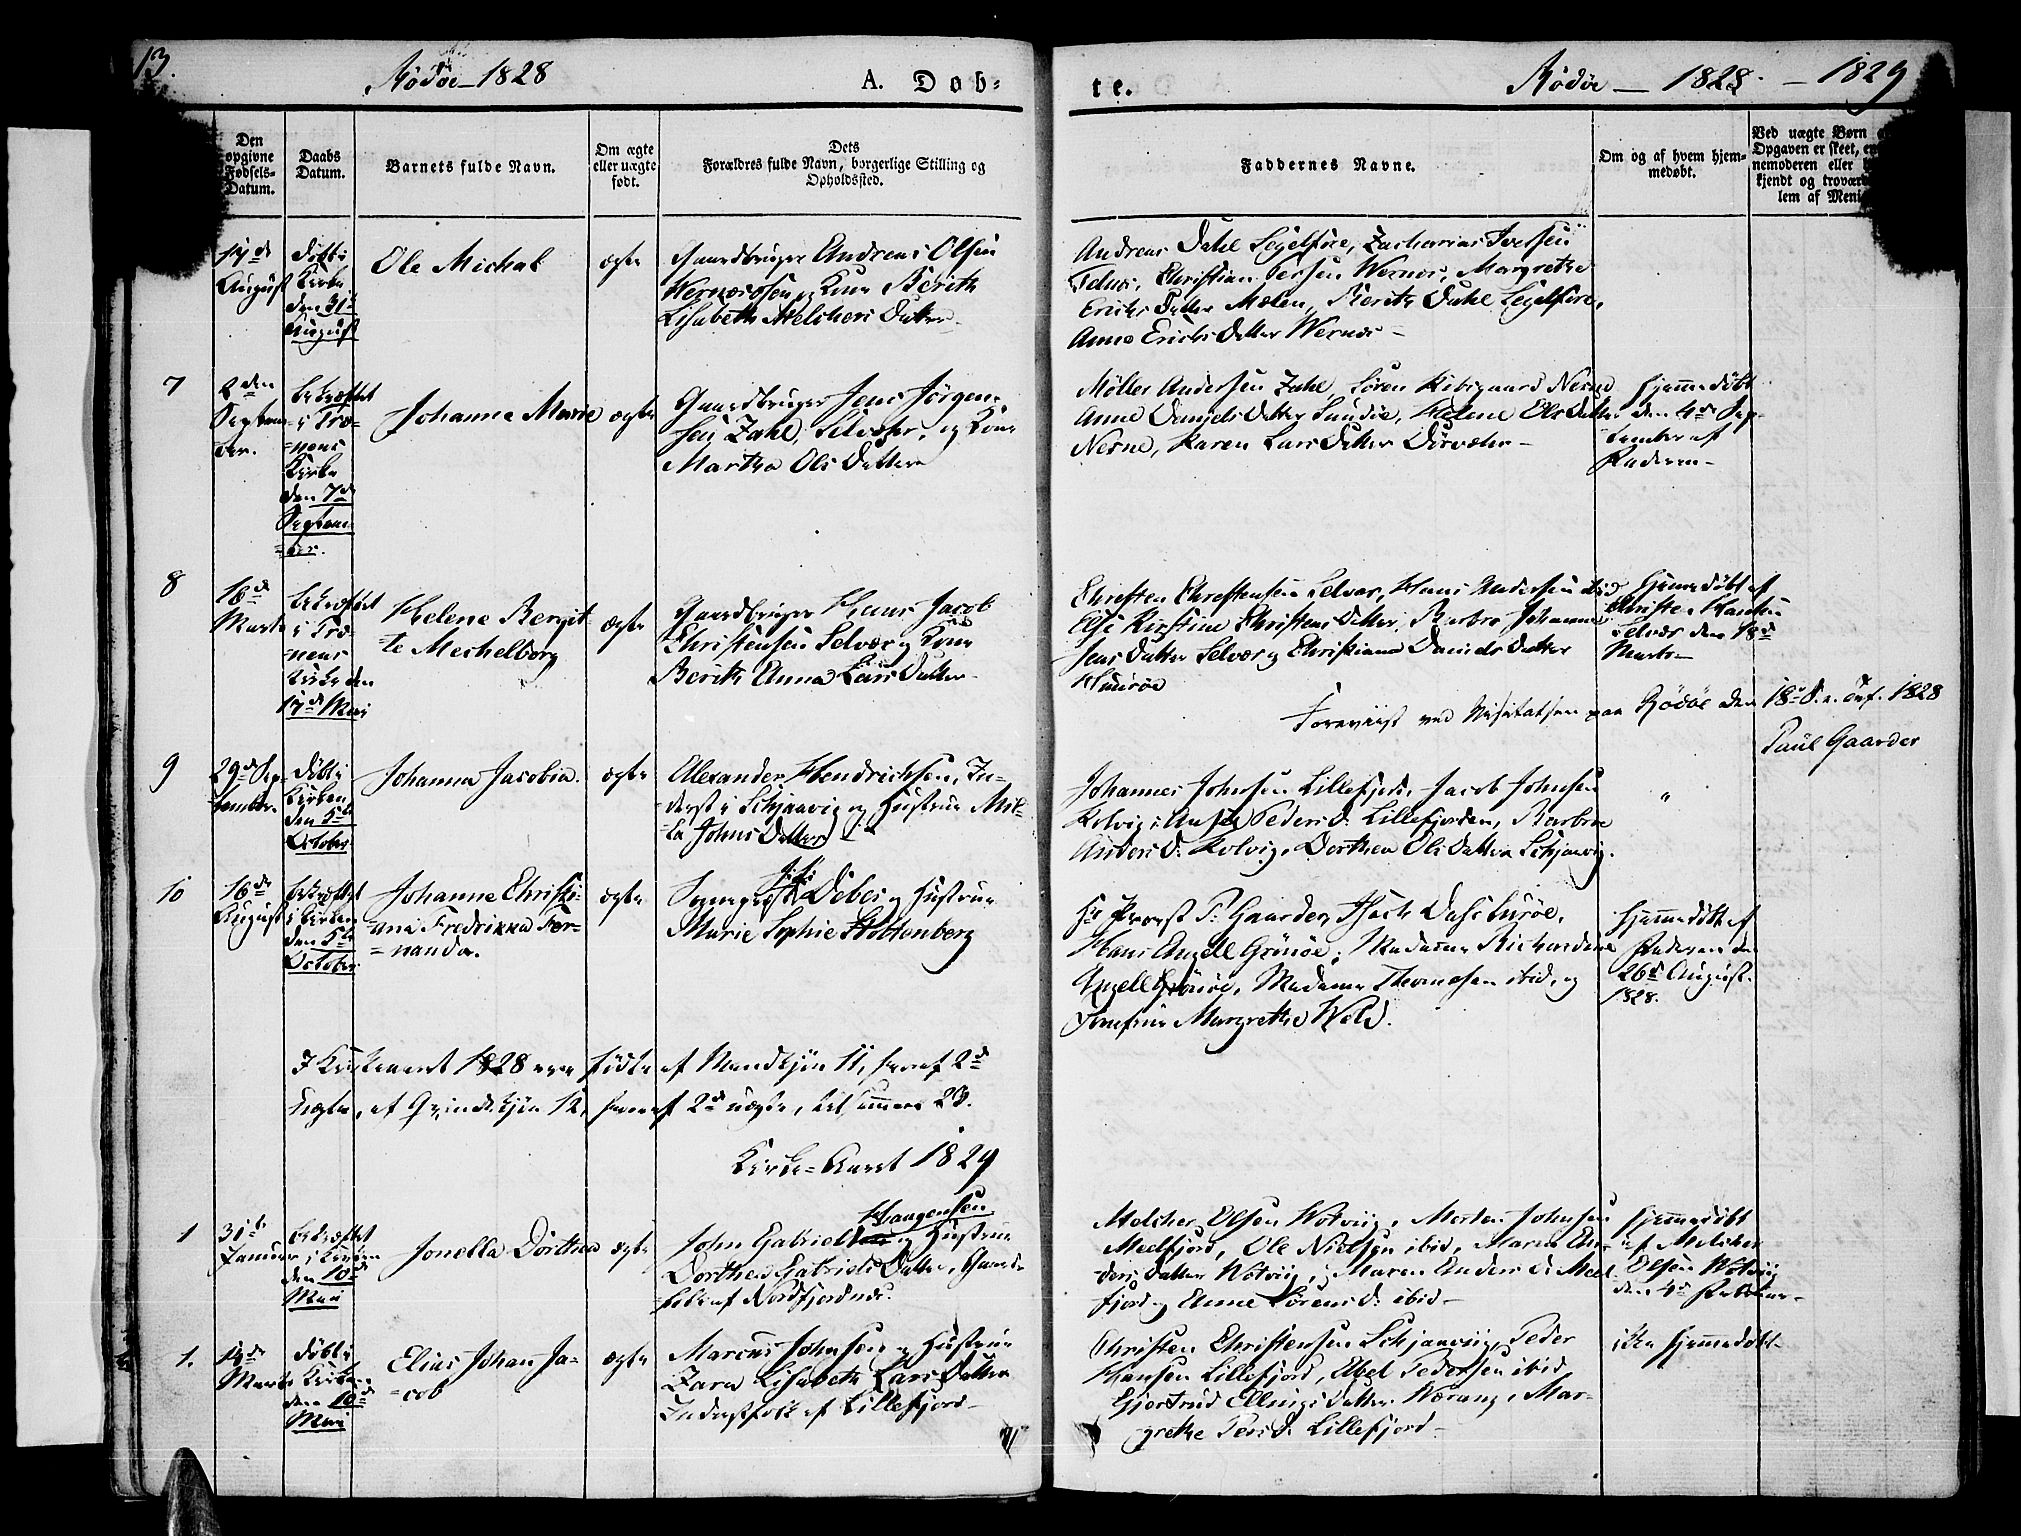 13.
Rødøe 1828
A. Døb-
te.
Rødøe — 1828 — 1829
Den
opgivne
Fødsels-
Datum.
Daabs
Datum.
Barnets fulde Navn.
Om ægte
eller uægte
født.
Dets
Forældres fulde Navn, borgerlige Stilling og
Opholdssted.
Faddernes Navne.
Om og af hvem hjem-
medøbt.
Ved uægte Børn
Opgaven er skeet,
nemoderen eller
kjendt og troværd
lem af Meni
17de
August
døbt i
Kirke
den 31te
August
Ole Michal
ægte
Gaardbruger Andreas Olsen
Wernæsosen og Kone Berith
Lisabeth Melchers Datter
Andreas Dahl Selsøre, Zacharias Iversen
Christian Wernæs, Margrethe
Erichs Datter Melen, Berith Dahl
Anne Erichs Datter Wernæs —
7
2den
Septem-
ber.
bekræftet
i Træ-
-nens
Kirke
den 7de
Septem-
-ber.
Johanna Marie
ægte
Gaardbruger Jens Jørgen-
sen Zahl, Selvær, og Kone
Martha Ols Datter
Møller Andersen Zahl, Søren Kibsgaard Nesne
Anne Daniels Datter Sandøe, Helene Ols Datter
Nesne, Karen Lars Datter Dørvær —
Hjemmedøbt
den 4de Sep-
tember af
Faderen —
8
16de
Marts
bekræftet
i Træ-
-nens
Kirke den
17de Mai
Helene Bergit-
-te Mechelborg
ægte
Gaardbruger Hans Jacob
Christensen Selvær og Kone
Berith Anna Lars Datter
Christen Christensen Selvær, Hans Andersen ibid
Else Kirstine Christens Datter, Barbro Johanne-
sens Datter Selvær og Christiana Daniels Datter
Hjemmedøbt af
Christen
Selvær den 18de
Marts —
Foreviist ved Visitatsen paa Rødøe den 18de S. e. Trf. 1828
Paul Gaarder
9
29de Sep-
tember.
døbt i
Kirken
den 5te
October
Johanna Jacobia.
ægte
Alexander Hendrichsen, In-
-derst i Schjaavig og Hustrue
Johns Datter
Johannes Johnsen Lillefjord, Jacob Johnsen
Kolvig, Peders D: Lillefjorden, Barbroe
Anders D: Kolvig, Dorthea Ols Datter Schjaavig.
"
10
16de
August
bekræftet
i Kirken
den 5te
October
Johanne Christi-
-ana Fredrikka Fer-
-nanda.
ægte
Sognepræst Debes og Hustrue
Marie Sophie Stoltenberg
Hr Provst P: Gaarder, Isach Dass Lurøe,
Hans Angell Grönöe, Madame Richardine
Angell Grönöe, Madame Thomesen ibid, og
Jomfrue Margrethe Weld.
Hjemmedøbt af
Faderen den
26de August
1828.
I Kirkeaaret 1828 ere fødte af Mandkjön 11, heraf 2de
uægte, af Qvindekjön 12, heraf 2de uægte, tilsammen 23.
Kirke-Aaret 1829
1
31te
Januar
bekræftet
i Kirken
den 10de
Mai
Jonetta Dorthea
ægte
Haagensen
John Gabriel og Hustrue
Dorthea Gabriels Datter, Gaard-
-folk af Nordfjordnæs.
Melcher Olsen Wotvig, Morten Johnsen
Meelfjord, Ole Nielsen ibid, Maren An-
-ders Datter Wotvig, Maren Anders D: Meel-
fjord og Anne Sørens D: ibid —
Hjemmedøbt
af Melcher
Olsen Wotvig
den 4de Februar —
1.
14de
Marts
døbt i
Kirken
den 10de
Mai
Elias Johan Ja-
-cob
ægte
Marcus Johnsen og Hustrue
Zara Lisabeth Lars Datter
Inderstfolk af Lillefjord —
Christen Christensen Schjaavig, Peder
Hansen Lillefjord, Abel Pedersen ibid
Gjertrud Ellings Datter Wærang, Mar-
grethe Pers D: Lillefjord —
ikke hjemmedøbt —